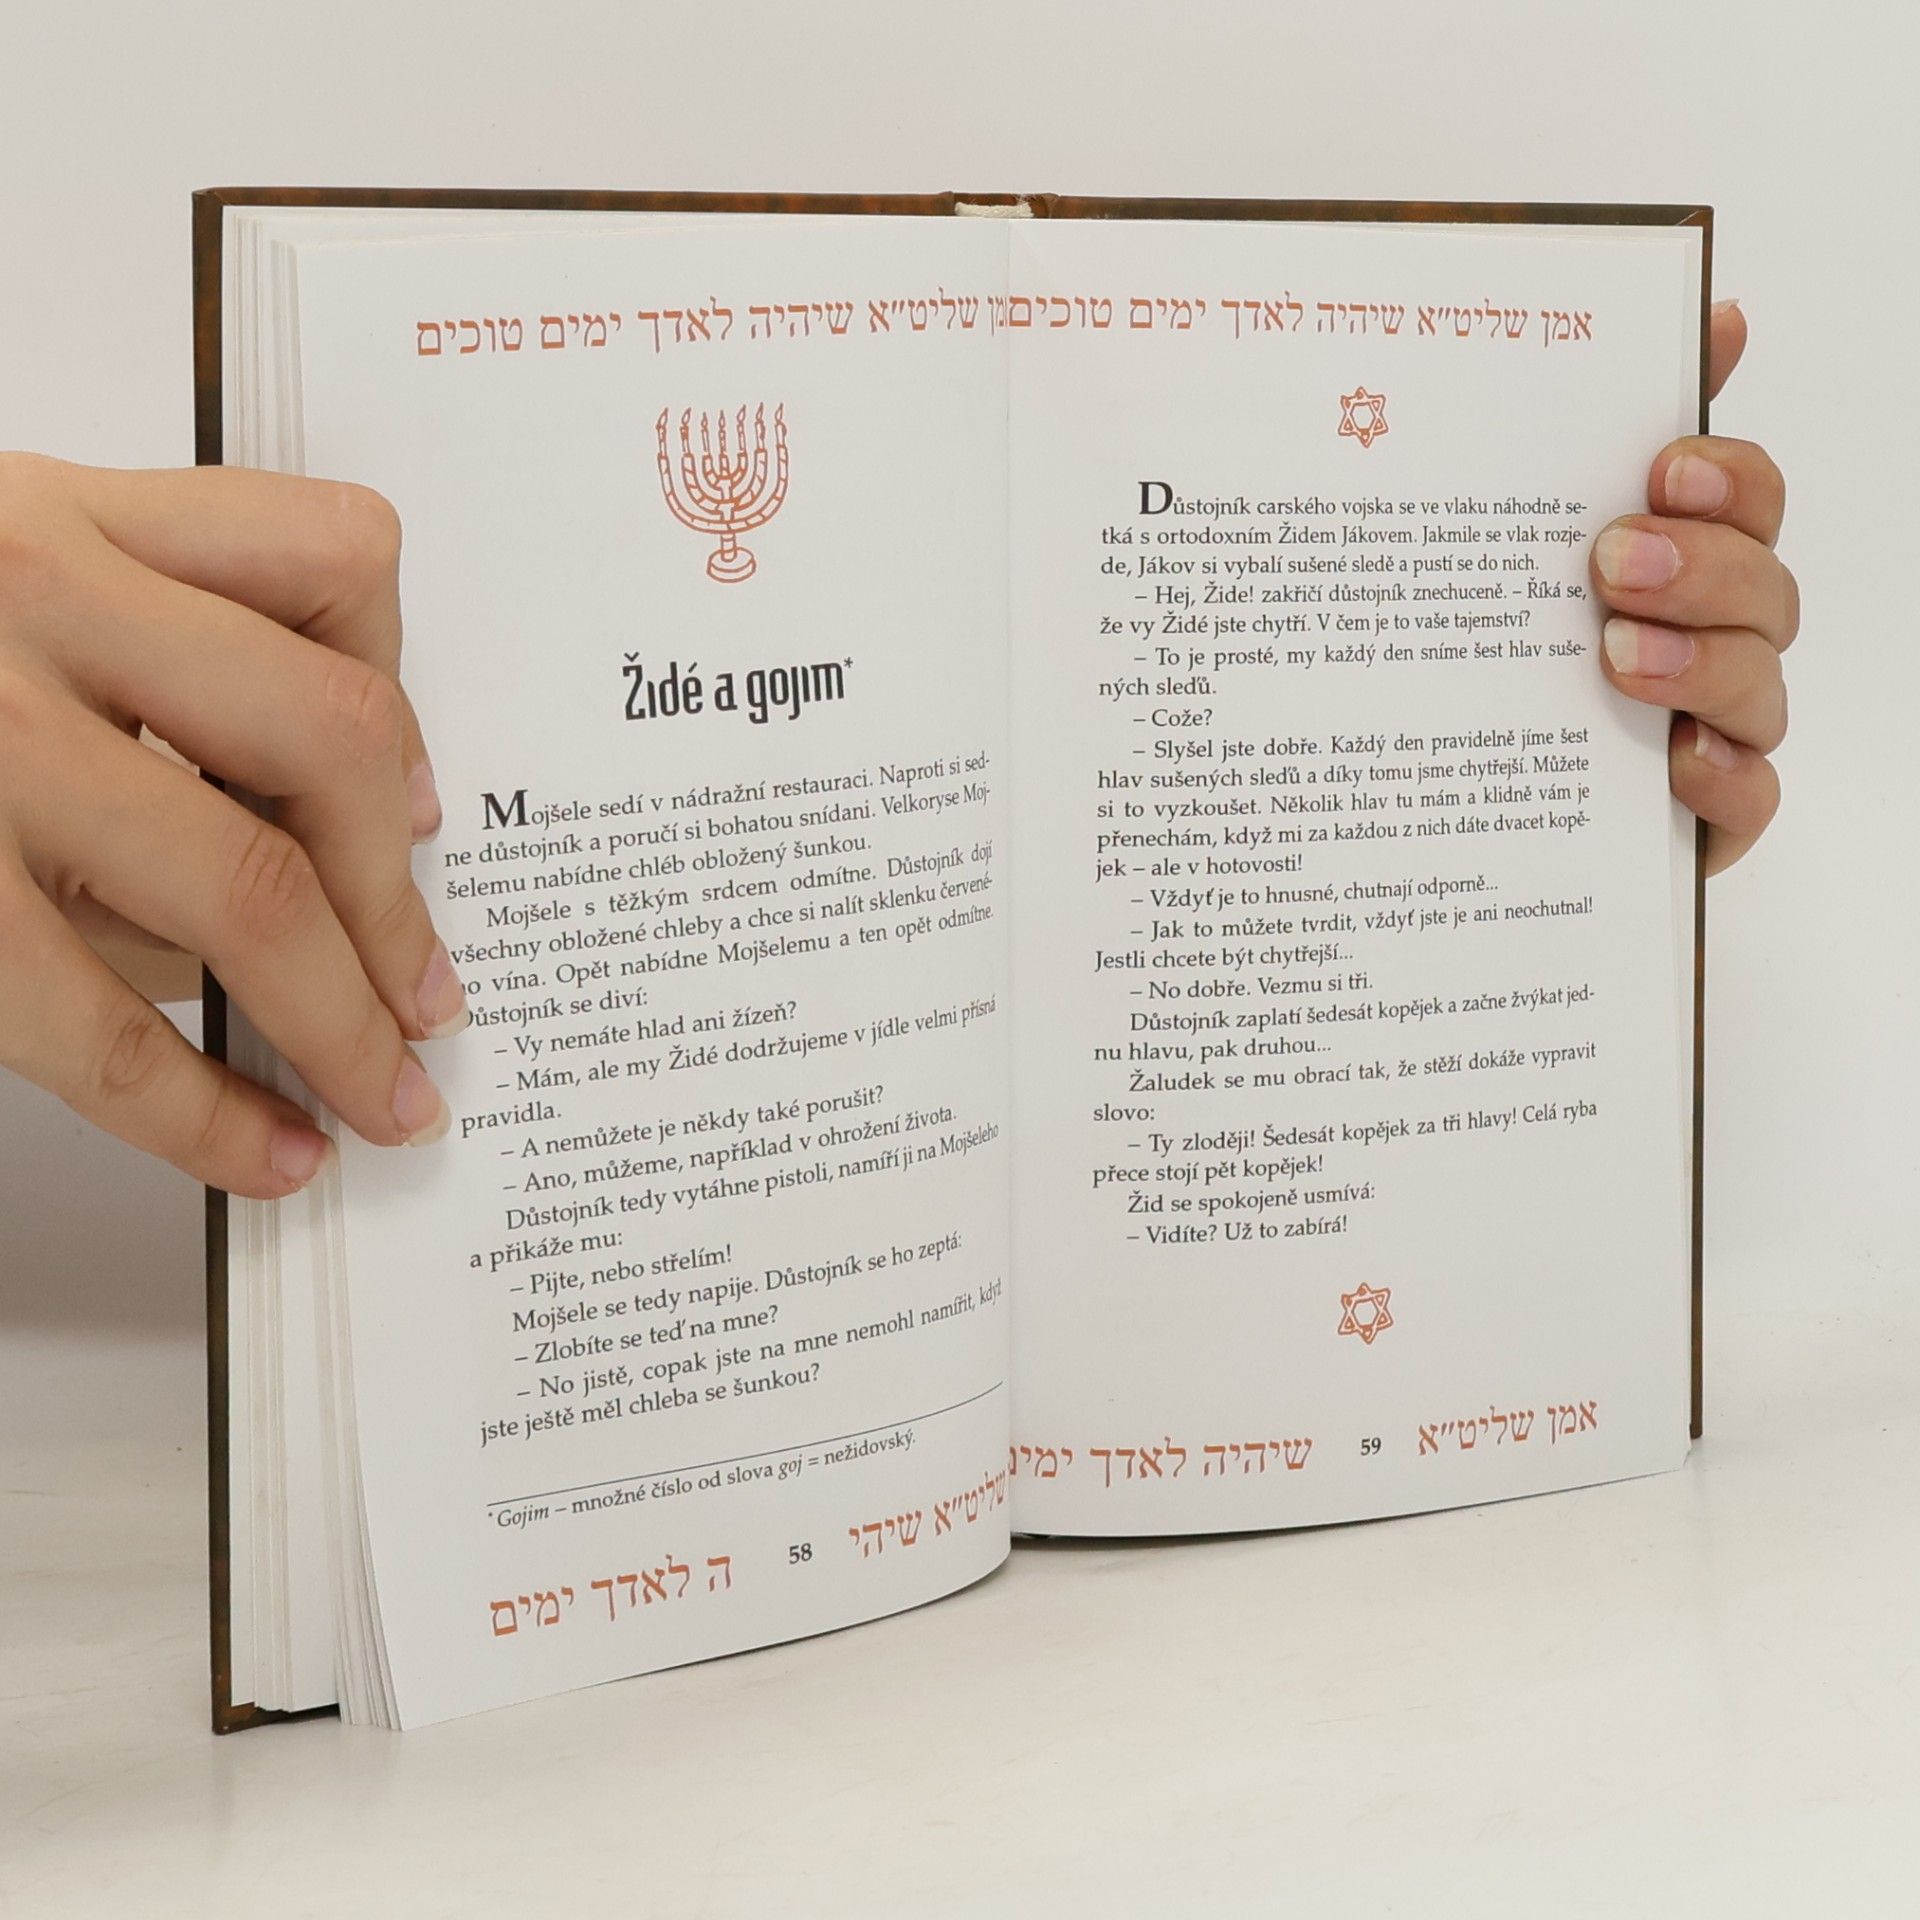 שליט"א שיהיה לאדך ימים טוכים
Židé a gojim*
Mojšele sedí v nádražní restauraci. Naproti si sed-
ne důstojník a poručí si bohatou snídani. Velkoryse Moj-
šelemu nabídne chléb obložený šunkou.
Mojšele s těžkým srdcem odmítne. Důstojník dojí
všechny obložené chleby a chce si nalít sklenku červené-
ho vína. Opět nabídne Mojšelemu a ten opět odmítne.
Důstojník se diví:
– Vy nemáte hlad ani žízeň?
– Mám, ale my Židé dodržujeme v jídle velmi přísná
pravidla.
– A nemůžete je někdy také porušit?
– Ano, můžeme, například v ohrožení života.
Důstojník tedy vytáhne pistoli, namíří ji na Mojšeleho
a přikáže mu:
– Pijte, nebo střelím!
Mojšele se tedy napije. Důstojník se ho zeptá:
– Zlobíte se teď na mne?
– No jistě, copak jste na mne nemohl namířit, když
jste ještě měl chleba se šunkou?
* Gojim – množné číslo od slova goj = nežidovský.
שליט"א שיהי 58 ה לאדך ימים
אמן שליט"א שיהיה לאדך ימים טוכים
Důstojník carského vojska se ve vlaku náhodně se-
tká s ortodoxním Židem Jákovem. Jakmile se vlak rozje-
de, Jákov si vybalí sušené sledě a pustí se do nich.
– Hej, Žide! zakřičí důstojník znechuceně. – Říká se,
že vy Židé jste chytří. V čem je to vaše tajemství?
– To je prosté, my každý den sníme šest hlav suše-
ných sleďů.
– Cože?
– Slyšel jste dobře. Každý den pravidelně jíme šest
hlav sušených sleďů a díky tomu jsme chytřejší. Můžete
si to vyzkoušet. Několik hlav tu mám a klidně vám je
přenechám, když mi za každou z nich dáte dvacet kopě-
jek – ale v hotovosti!
– Vždyť je to hnusné, chutnají odporně...
– Jak to můžete tvrdit, vždyť jste je ani neochutnal!
Jestli chcete být chytřejší...
– No dobře. Vezmu si tři.
Důstojník zaplatí šedesát kopějek a začne žvýkat jed-
nu hlavu, pak druhou...
Žaludek se mu obrací tak, že stěží dokáže vypravit
slovo:
– Ty zloději! Šedesát kopějek za tři hlavy! Celá ryba
přece stojí pět kopějek!
Žid se spokojeně usmívá:
– Vidíte? Už to zabírá!
אמן שליט"א 59 שיהיה לאדך